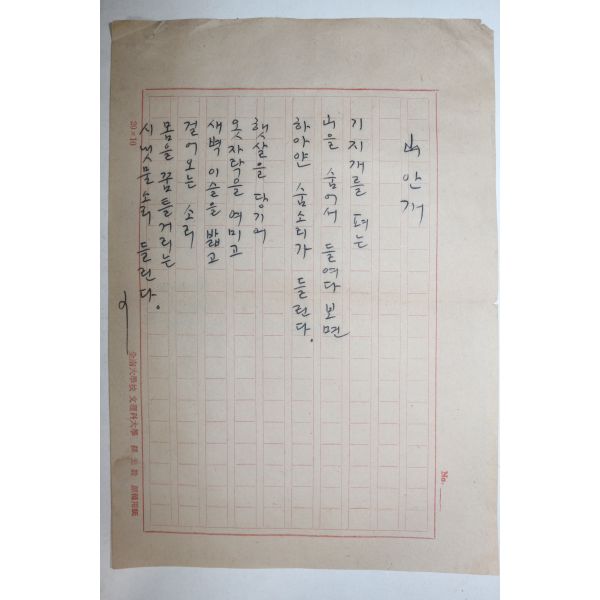 No.
山 안개
기지개를 펴는
山을 숨어서 들여다 보면
하아얀 숨소리가 들린다.
햇살을 당기어
옷자락을 여미고
새벽 이슬을 밟고
걸어오는 소리
몸을 꿈틀거리는
시냇물소리 들린다.
20×10
全南大學校 文理科大學 原稿用紙